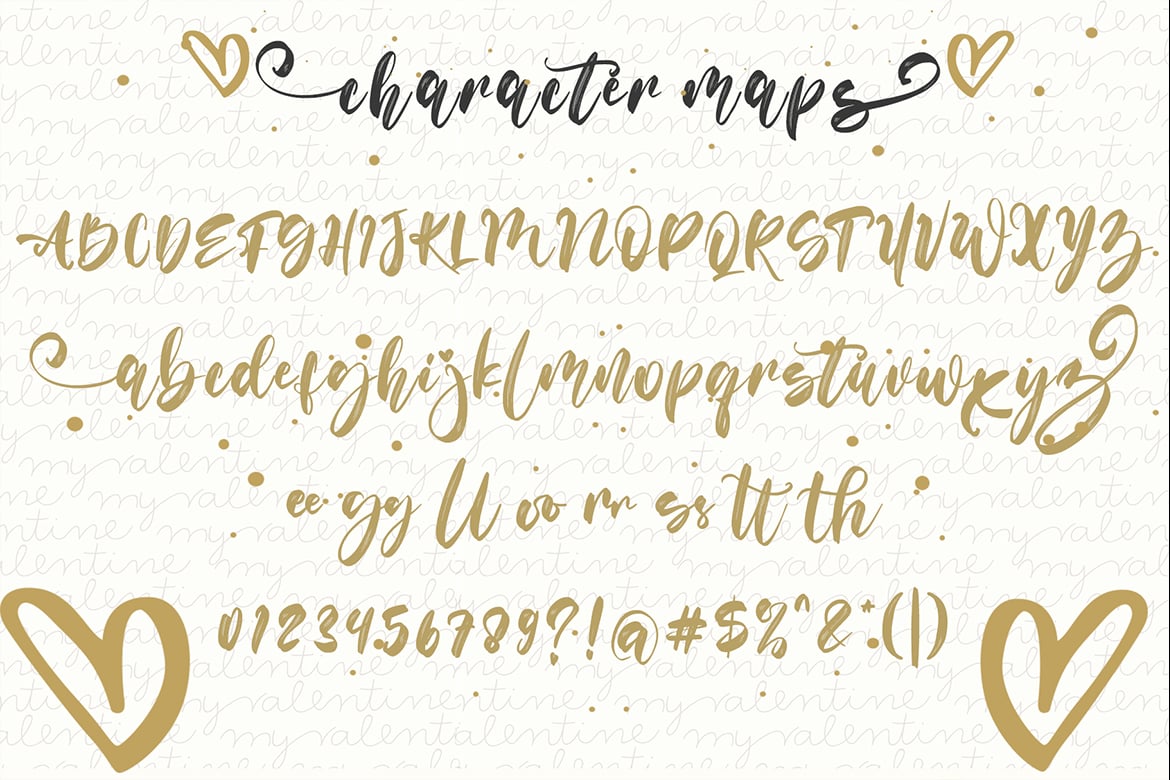 character maps
ABCDEFGHIJKLMNOPQRSTUVWXYZ
abcdefghijklmnopqrstuvwxyz
ee gg ll oo rr ss tt th
0123456789?!@#$%^&*:(|)
my valentine